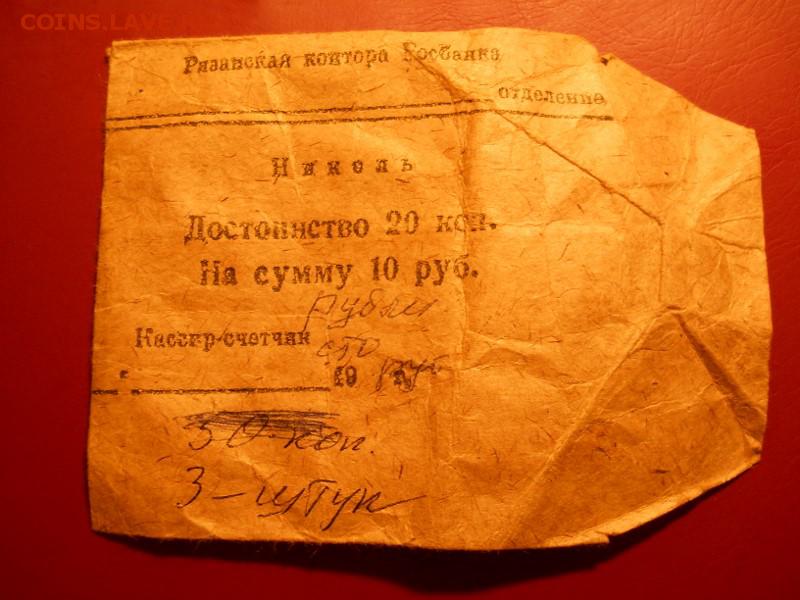 COINS.LAVE
Рязанская контора Госбанка
отделение
Никель
Достоинство 20 коп.
На сумму 10 руб.
рубли
Кассир-счетчик
сто
19 руб
50-коп.
3-штук